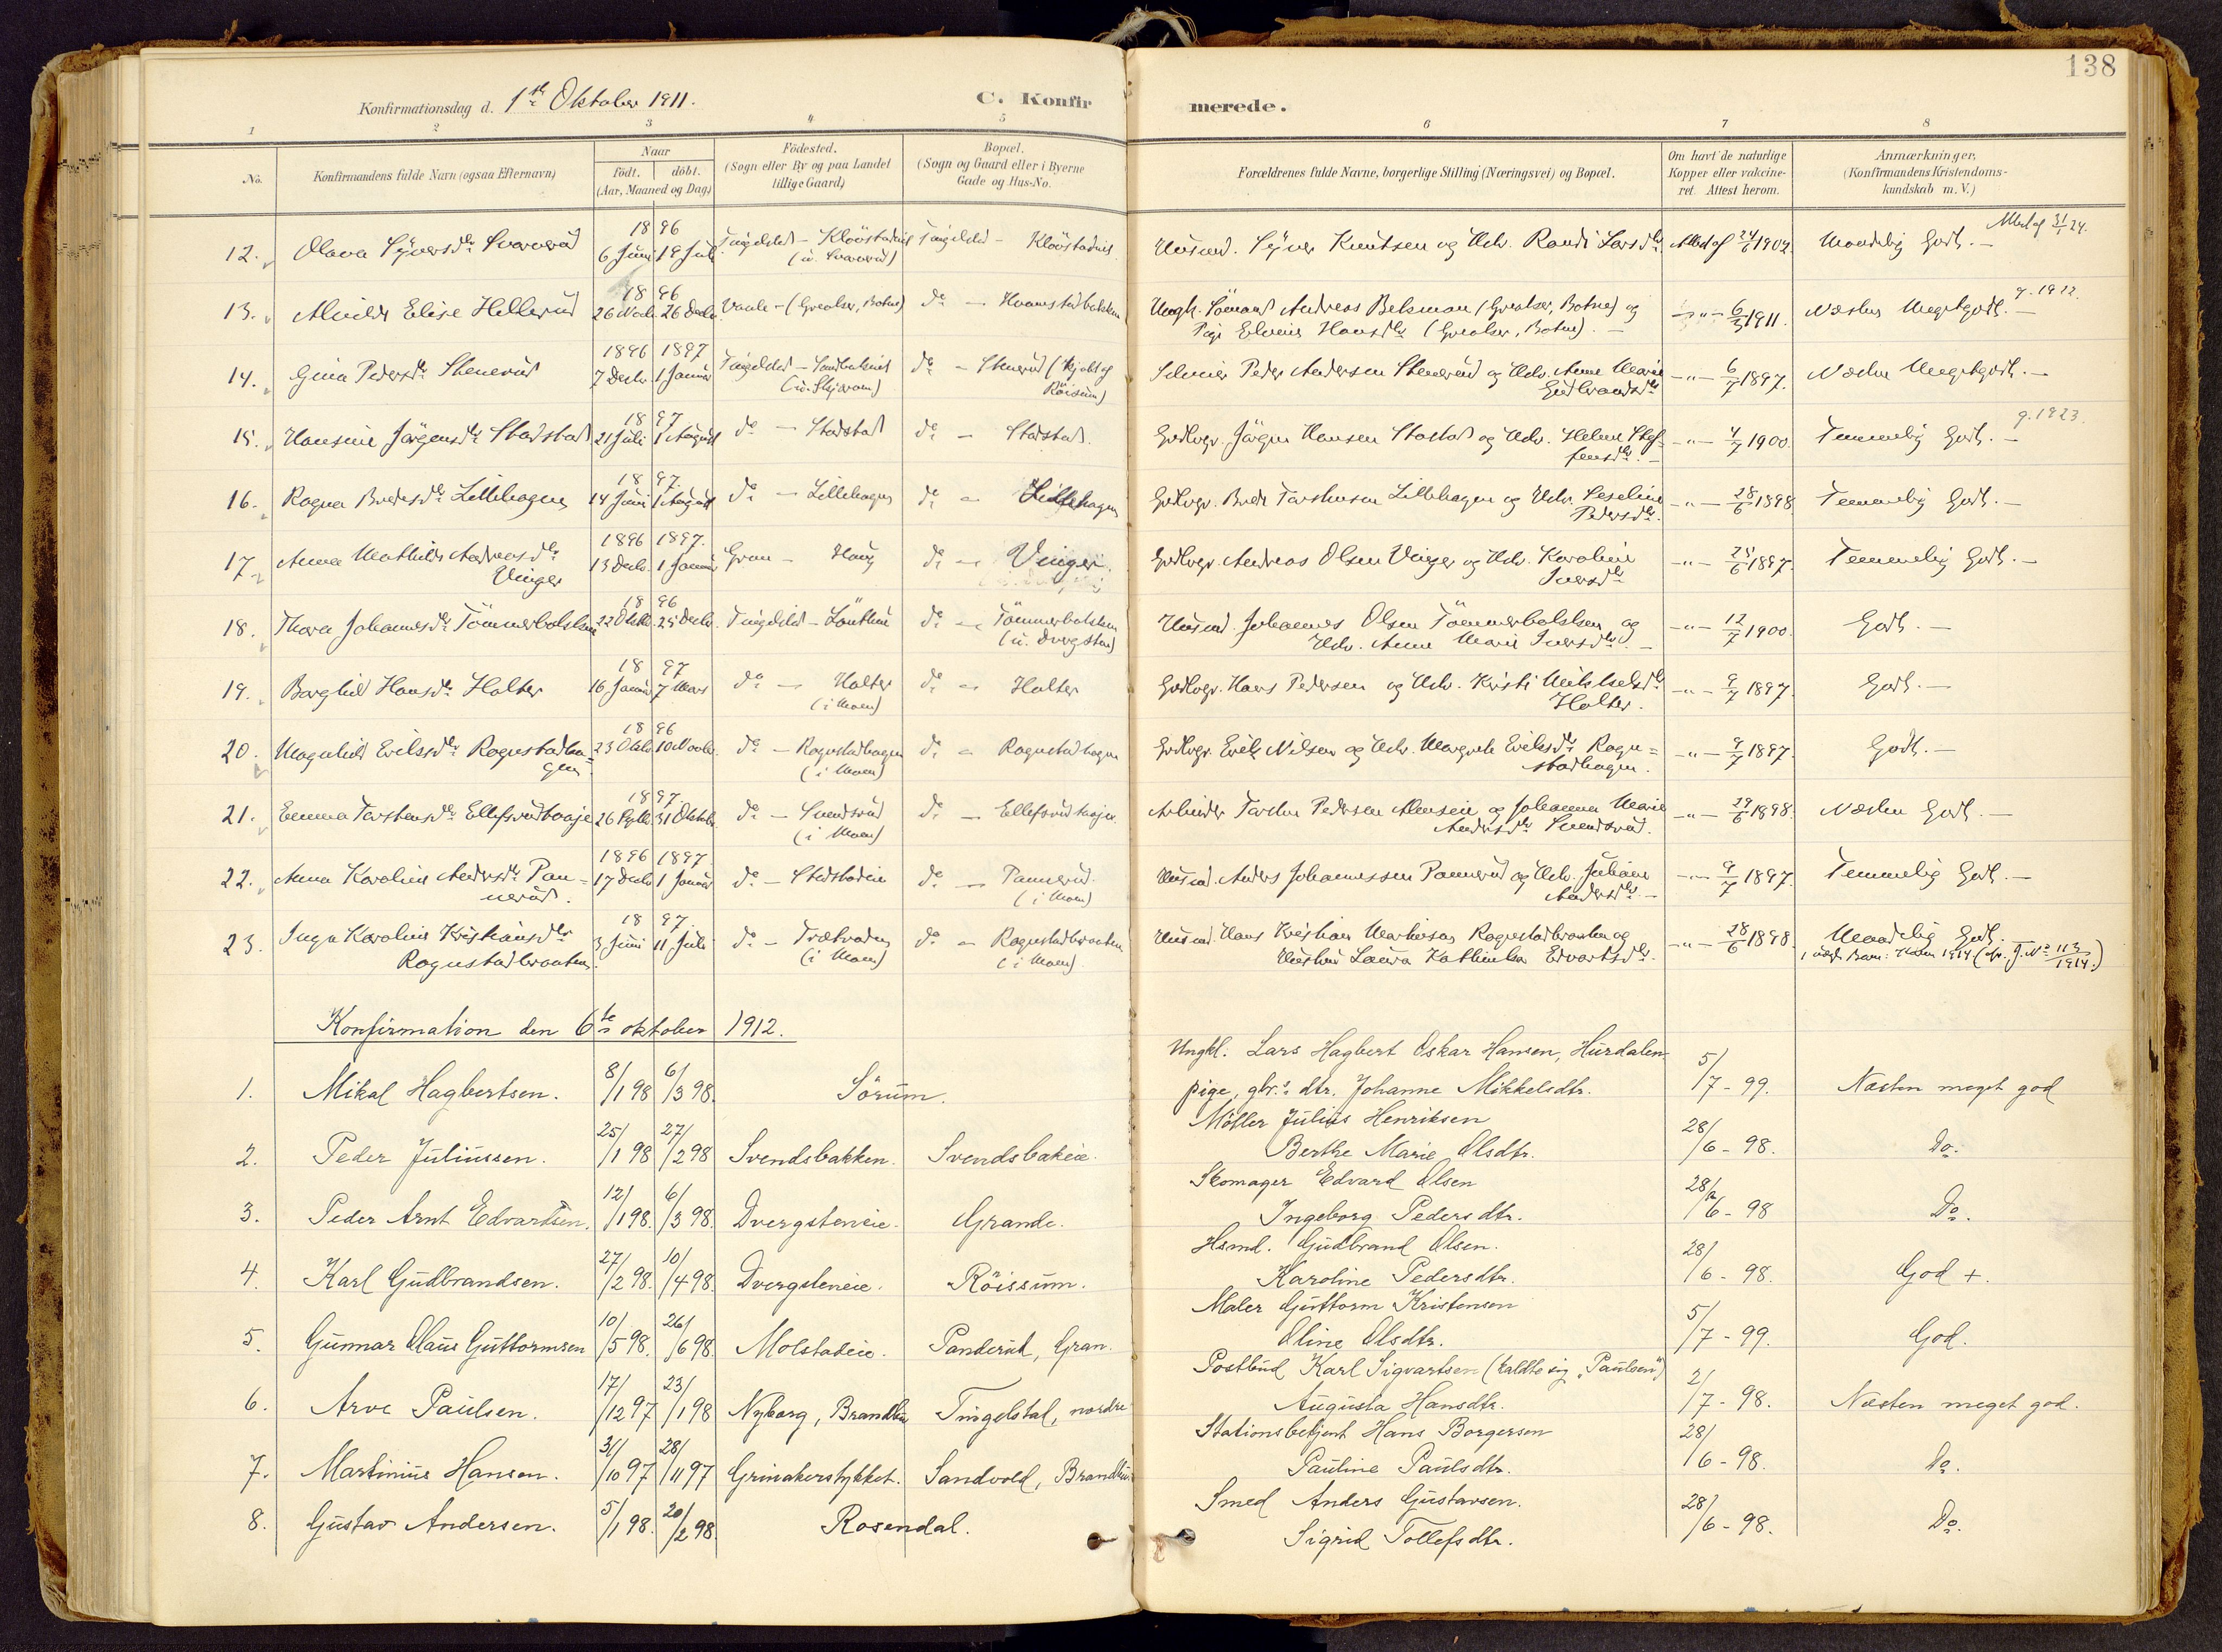 138
Konfirmationsdag d. 1ste Oktober 1911. C. Konfirmerede.
1 2 3 4 5 6 7 8
No. Konfirmandens fulde Navn (ogsaa Efternavn) Naar födt. döbt. (Aar, Maaned og Dag) Födested. (Sogn eller By og paa Landet tillige Gaard) Bopæl. (Sogn og Gaard eller i Byerne Gade og Hus-No. Forældrenes fulde Navne, borgerlige Stilling (Næringsvei) og Bopæl. Om havt de naturlige Kopper eller vakcineret. Attest herom. Anmærkninger, (Konfirmandens Kristendomskundskab m. V.)
12. Olava Syversdr. 1896 6 Juni 19 Juli Tingelstad - Tingelstad - Husmd. Syver Knutsen og Hstr. Randi Larsdr. Attest af 24/6 1902. Maadelig Godt. — Attest af 31/1 24.
13. Alvilde Elise Hellerud 1896 26 Novbr. 26 Decbr. Vaale - (Greaker, Botne) do — Ungk. Sömand Andreas Bekman (Greaker, Botne) og Pige Hansdr. (Greaker, Botne). — — " — 6/3 1911. Næsten Megetgodt. — g. 1922.
14. Gina Pedersdr. Stenerud 1896 1897 7 Decbr. 1 Januar Tingelstad - do - Stenerud Röisum) Peder Andersen Stenerud og Hstr. Anne Marie Gudbrandsdr. — " — 6/7 1897. Næsten Megetgodt. —
15. Hansine Jörgensdr. Stadstad 1897 21 Juli 1 August do — Stadstad do — Stadstad. Grdbrgr. Jörgen Hansen Stastad og Hstr. Helene Steffensdr. — — " — 4/7 1900. Temmelig Godt. — g. 1923.
16. Ragna Bredesdr. Lillehagen 1897. 14 Juni 1 August do — Lillehagen do — Lillehagen Grdbrgr. Brede Torstensen Lillehagen og Hstr. Pedersdr. — " — 28/6 1898 Temmelig Godt. —
17. Anna Mathilde Andreasdr. Vinger 1896 1897. 13 Decbr. 1 Januar Gran - Haug do — Vinger. Grdbrgr. Andreas Olsen Vinger og Hstr. Karoline Iversdr. — " — 25/6 1897. Temmelig Godt. —
18. Thora Johannesdr. Tömmerbolsken 1896 22 Oktbr. 25 Decbr. Tingelstad - do — Tömmerbolsken (u. Dvergsten) Husmd. Johannes Olsen Tömmerbolsken og Hstr. Anne Marie Iversdr. — — " — 12/7 1900. Godt. —
19. Borghild Hansdr. Halter 1897 16 Januar 7 Mars do — Halter (i Moen) do — Halter Grdbrgr. Hans Pedersen og Hstr. Kristi Mikkelsdr. Halter. — " — 9/7 1897. Godt. —
20. Magnhild Eriksdr. Rognstadhagen. 1896 23 Oktbr. 10 Novbr. do — Rognstadhagen (i Moen) do — Rognstadhagen Grdbrgr. Erik Nilsen og Hstr. Margrete Eriksdr. Rognstadhagen. — " — 9/7 1897. Godt. —
21. Emma Torstensdr. Ellefsrudhaaje 1897 26 31 Oktobr. do — Svendsrud (i Moen) do — Arbeider Torsten Pedersen og Johanna Marie Andersdr. Svendsrud. — " — 29/6 1898. Næsten Godt. —
22. Anna Karoline Andersdr. Pannerud. 1896 1897. 17 Decbr. 1 Januar do — Stadstadeie do — Pannerud. (i Moen) Husmd. Anders Johannessen Pannerud og Hstr. Juliane Andersdr. — — " — 9/7 1897. Temmelig Godt. —
23. Inga Karoline Kristiansdr. Rognstadbraaten. 1897. 3 Juni 11 Juli do — (i Moen) do — Rognstadbraaten (i Moen). Husmd. Hans Kristian Rognstadbraaten og Hustru Laura Kathinka Edvartsdr. — " — 28/6 1898. Maadelig Godt. 1914 (J. No 113/1914.)
Konfirmation den 6te oktober 1912.
1. Mikal Hagbertsen. 8/1 98 6/3 98. Sörum. Ungkl. Lars Hagbert Oskar Hansen, Hurdalen pige, gbr.s dtr. Johanne Mikkelsdtr. 5/7 - 99. Næsten meget god
2. Peder Juliussen. 25/1 98 27/2 98 Svendsbakken. Svendsbakeie. Möller Julius Henriksen Berthe Marie Olsdtr. 28/6 - 98. Do.
3. Peder Arnt Edvartsen. 12/1 98. 6/3 98. Dvergsteneie. Grande. Skomager Edvard Olsen Ingeborg Pedersdtr. 28/6 - 98 Do.
4. Karl Gudbrandsen. 27/2 98. 10/4 98. Dvergsteneie. Röissum. Hsmd. Gudbrand Olsen. Karoline Pedersdtr. 28/6 - 98. God +.
5. Gunnar Olaus Guttormsen 10/5 98. 26/6 98. Molstadeie. Panderud, Gran. Maler Guttorm Kristensen Oline Olsdtr. 5/7 - 99. God.
6. Arve Paulsen. 17/12 97 23/1 98 Nyborg, Brandbu Tingelstad, nordre Postbud Karl Sigvartsen (kaldte sig „Paulsen") Augusta Hansdtr. 2/7 - 98. Næsten meget god.
7. Martinius Hansen. 31/10 97 28/11 97 Grinakerstykket. Sandvold, Brandbu Stationsbetjent Hans Borgersen Pauline Paulsdtr. 28/6 - 98. Do.
8. Gustav Andersen. 5/1 98. 20/2 98. Rosendal. Smed Anders Gustavsen. Sigrid Tollefsdtr. 28/6 - 98. Do.